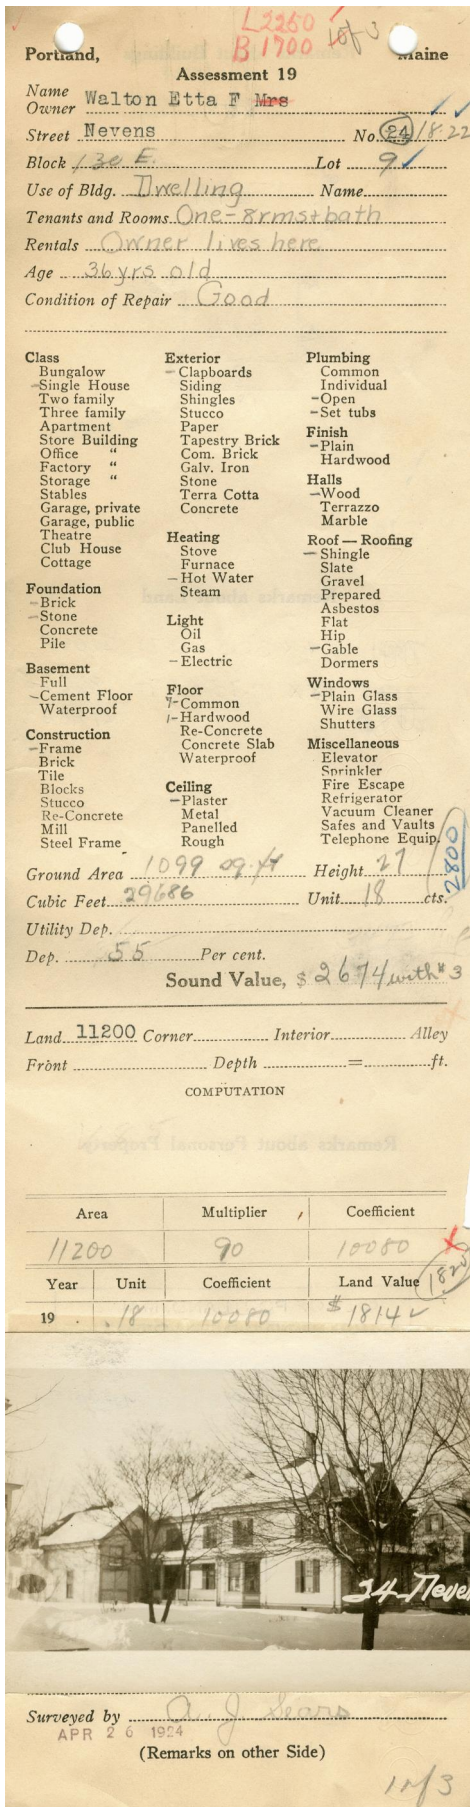 L2250
B1700 1 of 3
Portland, Maine
Assessment 19
Name
Owner Walton Etta F Mrs
Street Nevens No. 24 18-22
Block 130 E. Lot 9
Use of Bldg. Dwelling Name
Tenants and Rooms One-8rms+bath
Rentals Owner lives here
Age 36 yrs old
Condition of Repair Good
Class
Bungalow
Single House
Two family
Three family
Apartment
Store Building
Office "
Factory "
Storage "
Stables
Garage, private
Garage, public
Theatre
Club House
Cottage
Foundation
Brick
Stone
Concrete
Pile
Basement
Full
Cement Floor
Waterproof
Construction
Frame
Brick
Tile
Blocks
Stucco
Re-Concrete
Mill
Steel Frame
Exterior
Clapboards
Siding
Shingles
Stucco
Paper
Tapestry Brick
Com. Brick
Galv. Iron
Stone
Terra Cotta
Concrete
Heating
Stove
Furnace
Hot Water
Steam
Light
Oil
Gas
Electric
Floor
7-Common
1-Hardwood
Re-Concrete
Concrete Slab
Waterproof
Ceiling
Plaster
Metal
Panelled
Rough
Plumbing
Common
Individual
Open
Set tubs
Finish
Plain
Hardwood
Halls
Wood
Terrazzo
Marble
Roof — Roofing
Shingle
Slate
Gravel
Prepared
Asbestos
Flat
Hip
Gable
Dormers
Windows
Plain Glass
Wire Glass
Shutters
Miscellaneous
Elevator
Sprinkler
Fire Escape
Refrigerator
Vacuum Cleaner
Safes and Vaults
Telephone Equip.
2800
Ground Area 1099 sq. ft Height 27
Cubic Feet 29686 Unit 18 cts.
Utility Dep.
Dep. 55 Per cent.
Sound Value, $ 2674 with #3
Land 11200 Corner Interior Alley
Front Depth = ft.
COMPUTATION
Remarks about Personal Property
Area Multiplier Coefficient
11200 90 10080
Year Unit Coefficient Land Value 1820
19 .18 10080 $1814
24 Neven
Surveyed by A. J. Sears
APR 26 1924
(Remarks on other Side)
1 of 3